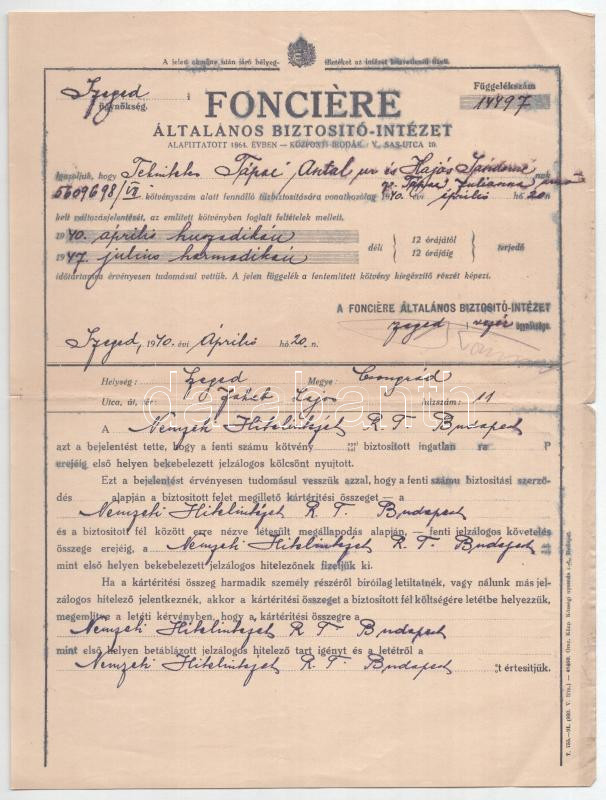 A jelen okmány után járó bélyeg- illetéket az intézet közvetlenül fizeti.
Szeged
ügynökség.
Függelékszám
14497
FONCIÈRE
ÁLTALÁNOS BIZTOSITÓ-INTÉZET
ALAPITTATOTT 1864. ÉVBEN — KÖZPONTI IRODÁK: V., SAS-UTCA 10.
Igazoljuk, hogy Tekintetes Tápai Antal ur és Hajós Sándorné nak
5609698/VII kötvényszám alatt fennálló tűzbiztosítására vonatkozólag 1940. évi április hó 20n
kelt változásjelentését, az emlitett kötvényben foglalt feltételek mellett.
1940. április huszadikán déli 12 órájától
1947. julius harmadikán 12 órájáig terjedő
időtartamra érvényesen tudomásul vettük. A jelen függelék a fentemlitett kötvény kiegészitő részét képezi.
A FONCIÈRE ÁLTALÁNOS BIZTOSITÓ-INTÉZET
szeged vezér ügynöksége.
Szeged, 1940. évi Április hó 20. n.
Helység: Szeged Megye: Csongrád
Utca, út, tér: Jakab Lajos házszám: 11
A Nemzeti Hitelintézet R. T. Budapest
azt a bejelentést tette, hogy a fenti számu kötvény biztosított ingatlan ra P
erejéig első helyen bekebelezett jelzálogos kölcsönt nyujtott.
Ezt a bejelentést érvényesen tudomásul vesszük azzal, hogy a fenti számu biztosítási szerző-
dés alapján a biztosított felet megillető kártérítési összeget — a
Nemzeti Hitelintézet R. T. Budapest
és a biztosított fél között erre nézve létesült megállapodás alapján, — fenti jelzálogos követelés
összege erejéig, a Nemzeti Hitelintézet R. T. Budapest
mint első helyen bekebelezett jelzálogos hitelezőnek fizetjük ki.
Ha a kártérítési összeg harmadik személy részéről biróilag letiltatnék, vagy nálunk más jel-
zálogos hitelező jelentkeznék, akkor a kártérítési összeget a biztosított fél költségére letétbe helyezzük,
megemlitve a letéti kérvényben, hogy a kártérítési összegre a
Nemzeti Hitelintézet R. T. Budapest
mint első helyen betáblázott jelzálogos hitelező tart igényt és a letétről a
Nemzeti Hitelintézet R. T. Budapest -t értesitjük.
darabanth